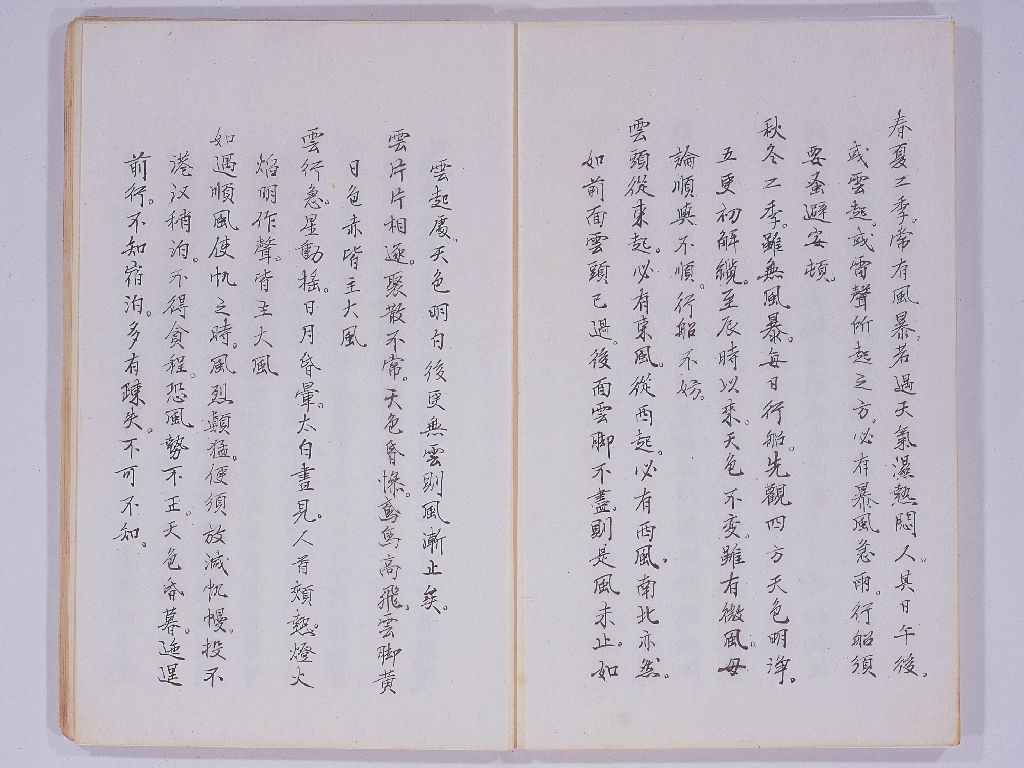 春夏二季。常有風暴。若遇天氣濕熱悶人。其日午後。
或雲起。或雷聲所起之方。必有暴風急雨。行船須
要蚤避安頓。
秋冬二季。雖無風暴。每日行船。先觀四方天色明淨。
五更初解纜。至辰時以來。天色不變。雖有微風。毋
論順與不順。行船不妨。
雲頭從東起。必有東風。從西起。必有西風。南北亦然。
如前面雲頭已過。後面雲脚不盡。則是風未止。如
雲起處。天色明白後更無雲則風漸止矣。
雲片片相逐。聚散不常。天色昏慘。鳶鳥高飛。雲脚黃
日色赤皆主大風
雲行急。星動搖。日月昏暈。太白晝見。人首頰熱。燈火
焰明作聲。皆主大風
如遇順風使帆之時。風烈顛猛。便須放減帆幔。投不
港汊稍泊。不得貪程。恐風勢不正。天色昏暮。迤逞
前行。不知宿泊。多有疎失。不可不知。